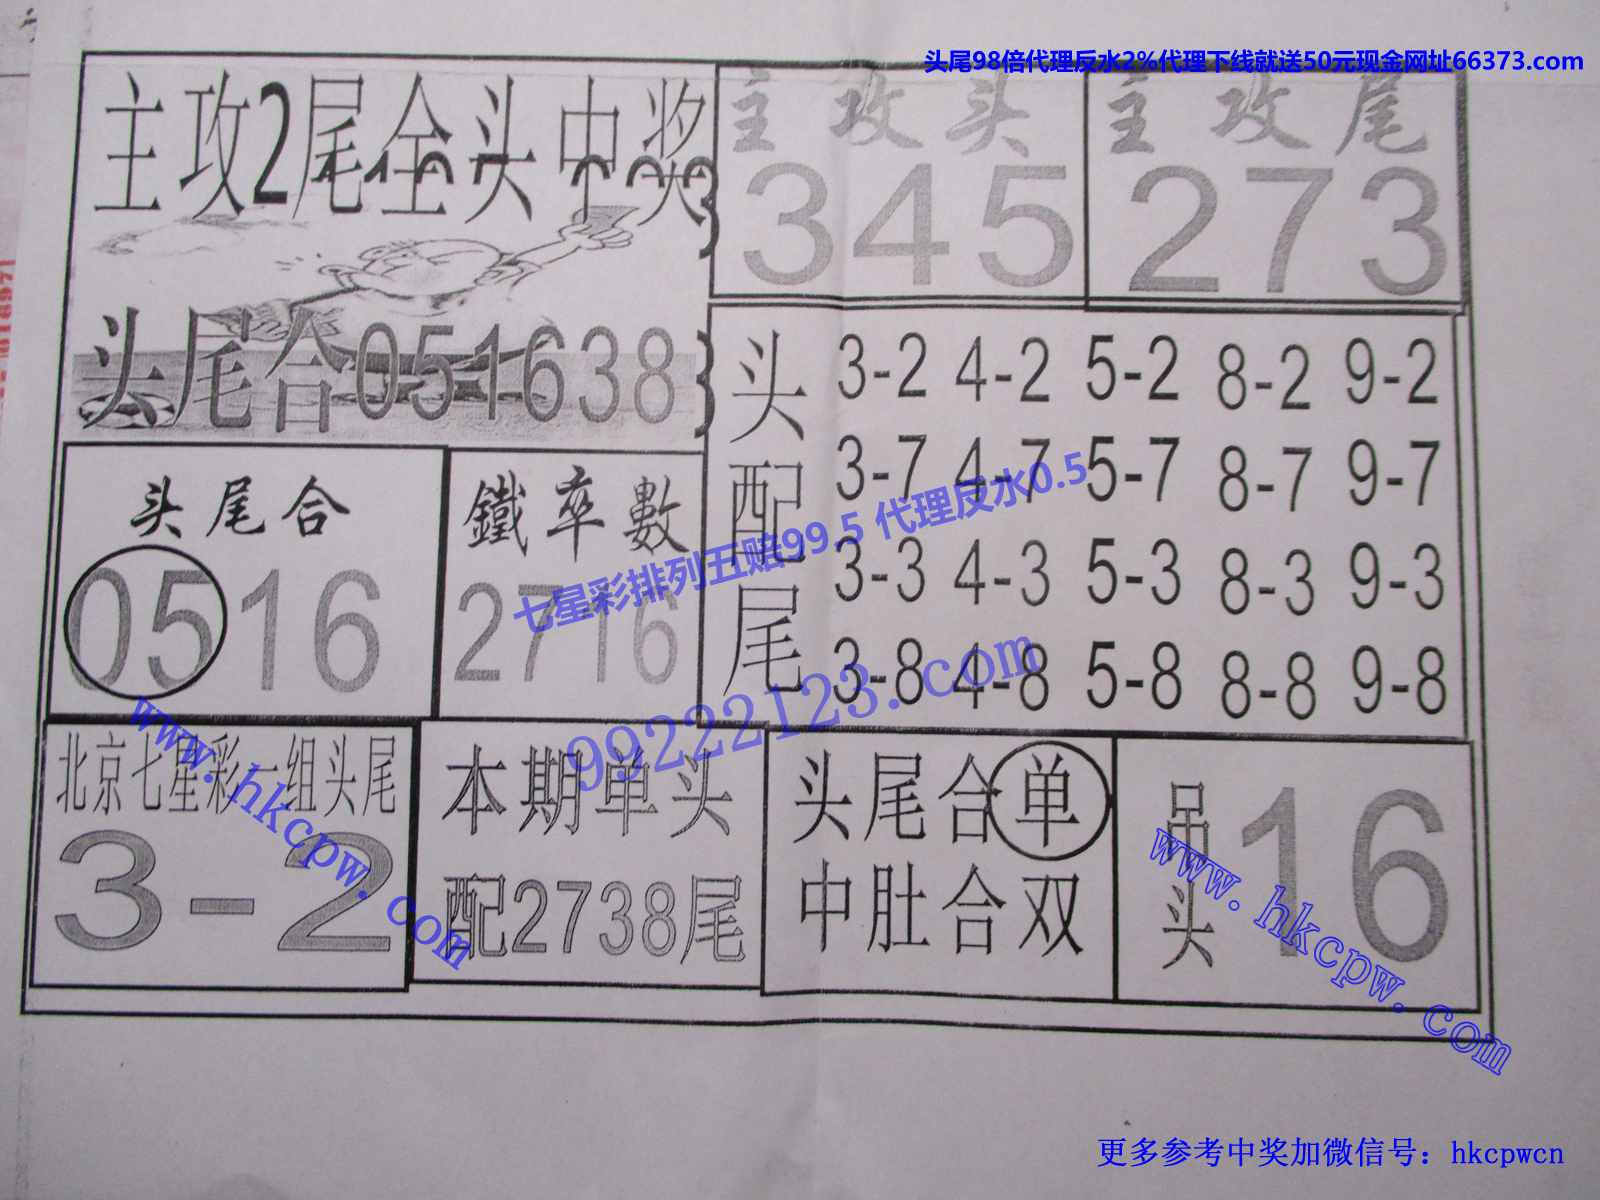 头尾98倍代理反水2%代理下线就送50元现金网址66373.com
主攻2尾全头中奖
主攻头
345
主攻尾
273
头尾合051638
头配尾
3-2 4-2 5-2 8-2 9-2
3-7 4-7 5-7 8-7 9-7
3-3 4-3 5-3 8-3 9-3
3-8 4-8 5-8 8-8 9-8
头尾合
0516
鐵率數
2716
七星彩排列五赔99.5 代理反水0.5
99222123.com
www.hkcpw.com
北京七星彩一组头尾
3-2
本期单头
配2738尾
头尾合单
中肚合双
吊头
16
www.hkcpw.com
更多参考中奖加微信号：hkcpwcn